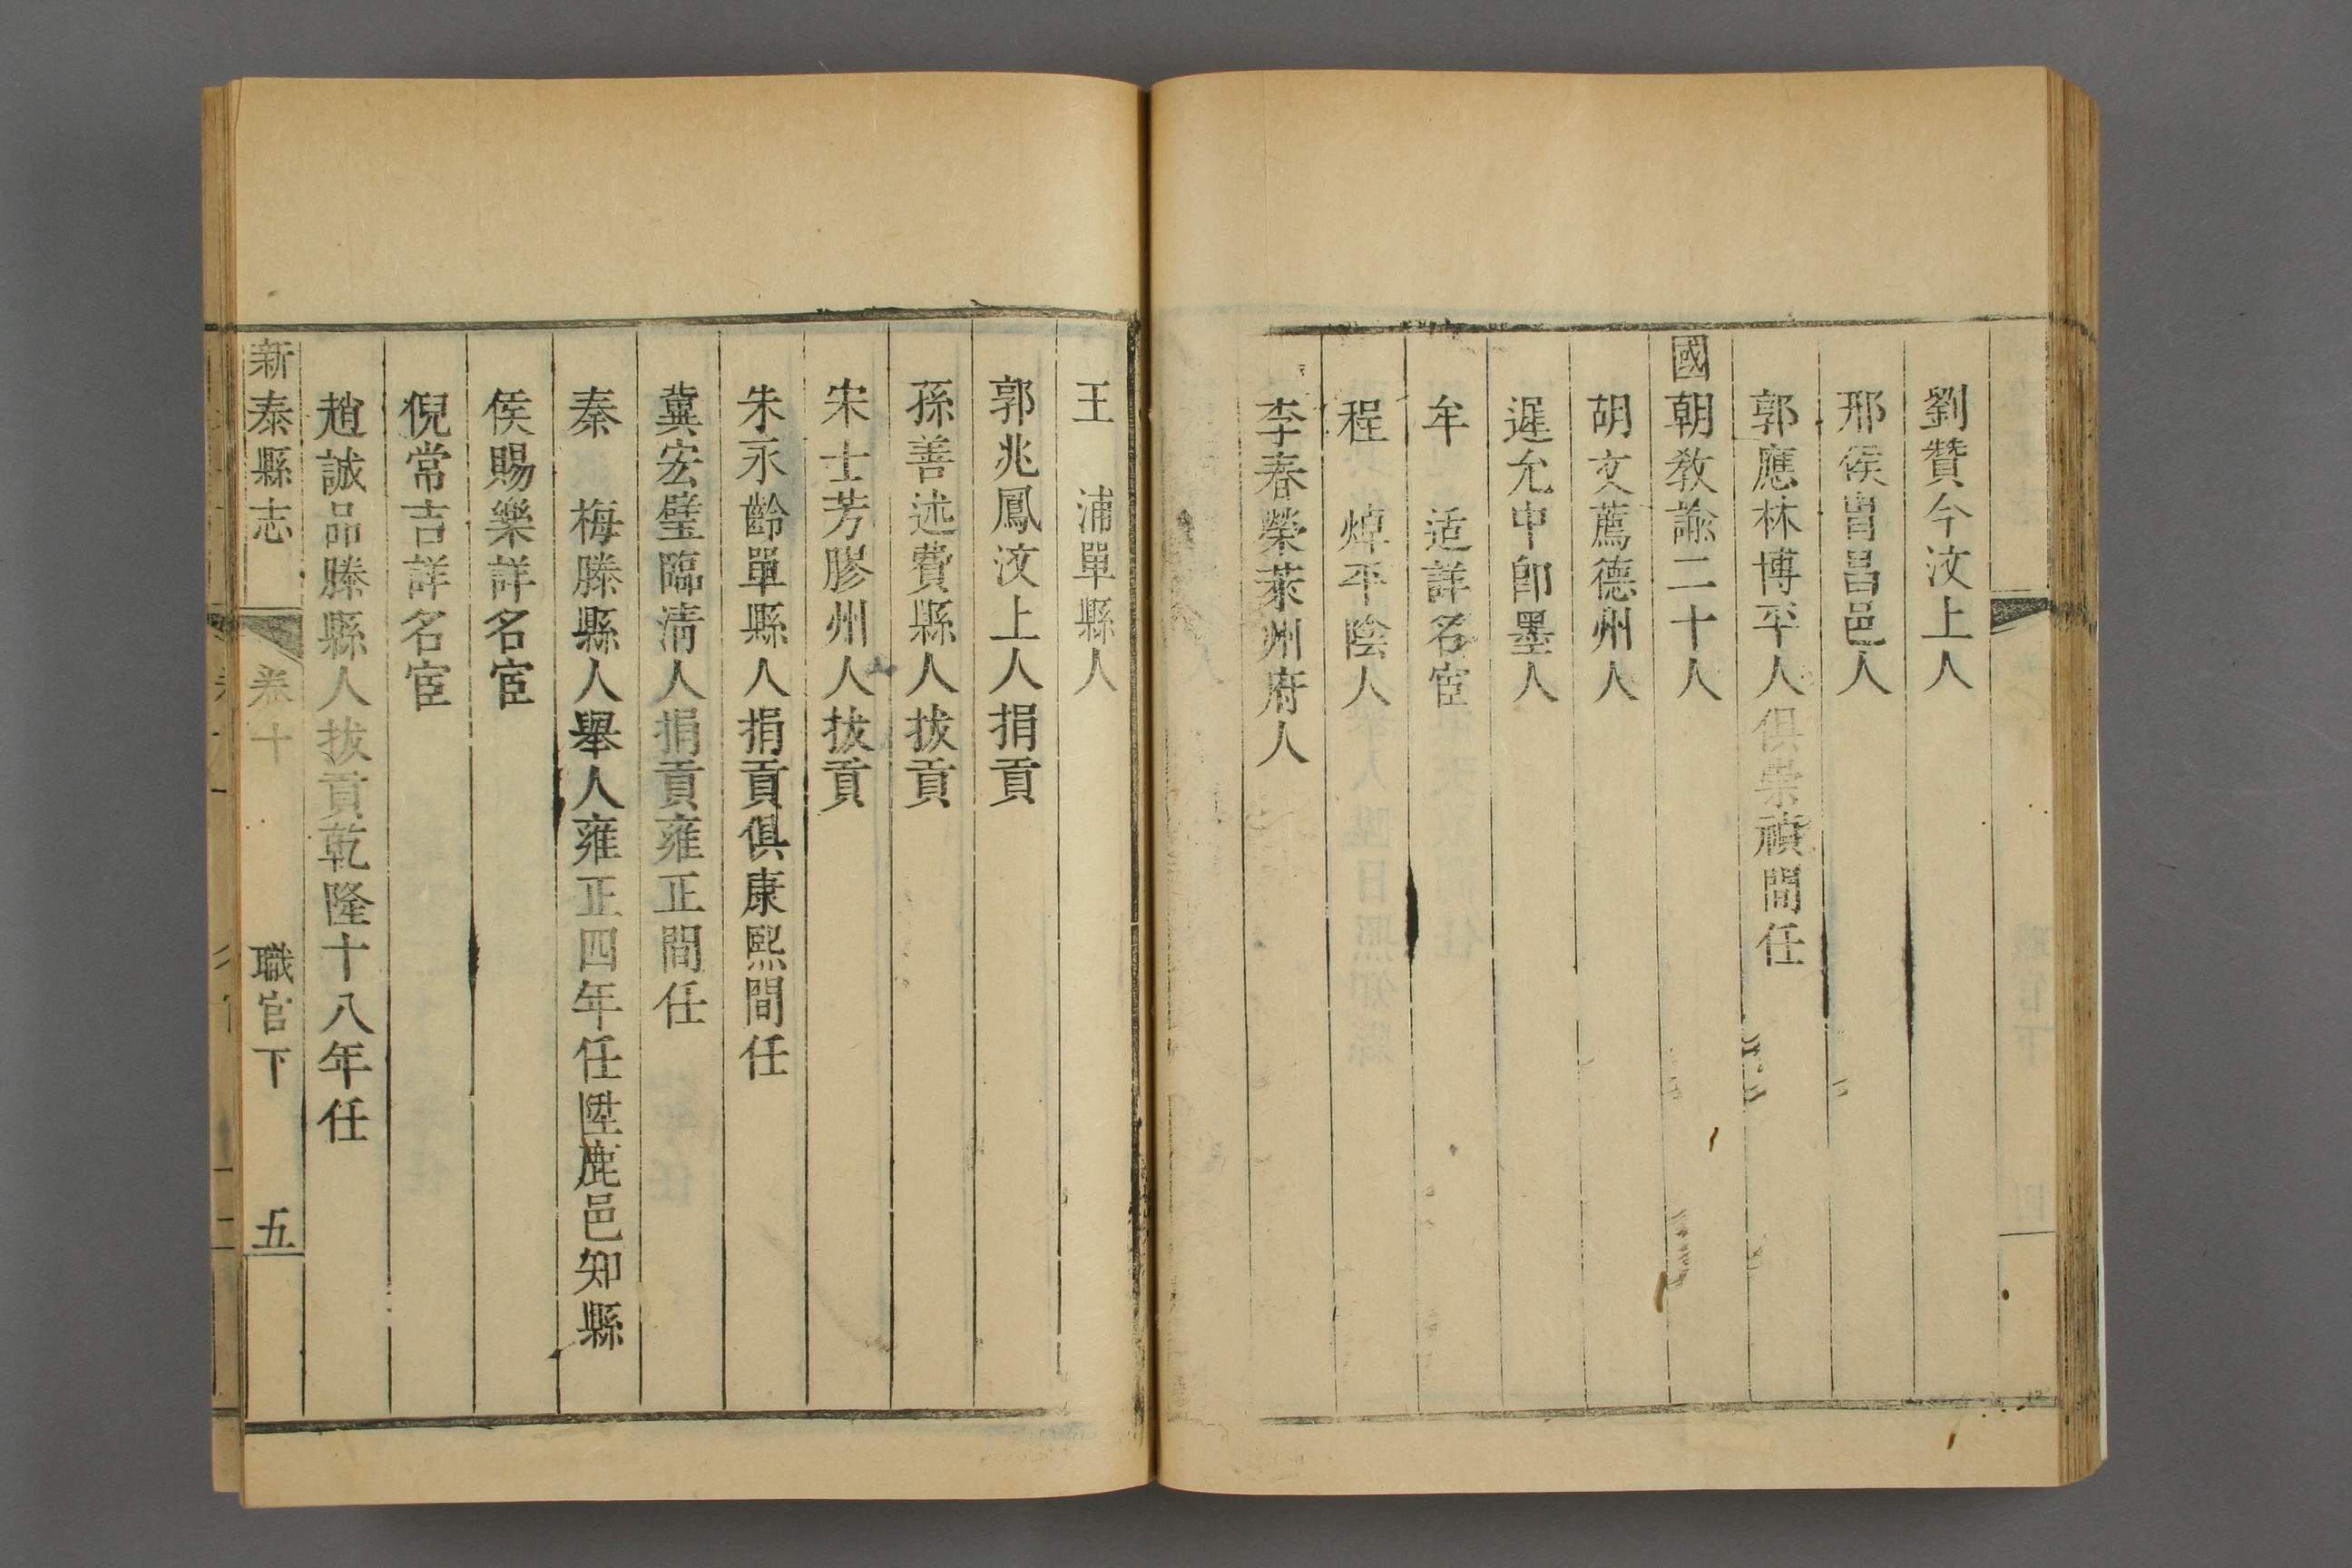 劉贊今汶上人
邢侯冑昌邑人
郭應林博平人俱崇禎間任
國朝教諭二十人
胡文薦德州人
遲允中卽墨人
牟　适詳名宦
程　焯平陰人
李春榮萊州府人
王　浦單縣人
郭兆鳳汶上人捐貢
孫善述費縣人拔貢
宋士芳膠州人拔貢
朱永齡單縣人捐貢俱康熙間任
冀宏璧臨清人捐貢雍正間任
秦　梅滕縣人舉人雍正四年任陞鹿邑知縣
侯賜樂詳名宦
倪常吉詳名宦
趙誠品滕縣人拔貢乾隆十八年任
新泰縣志　卷十　職官下　五